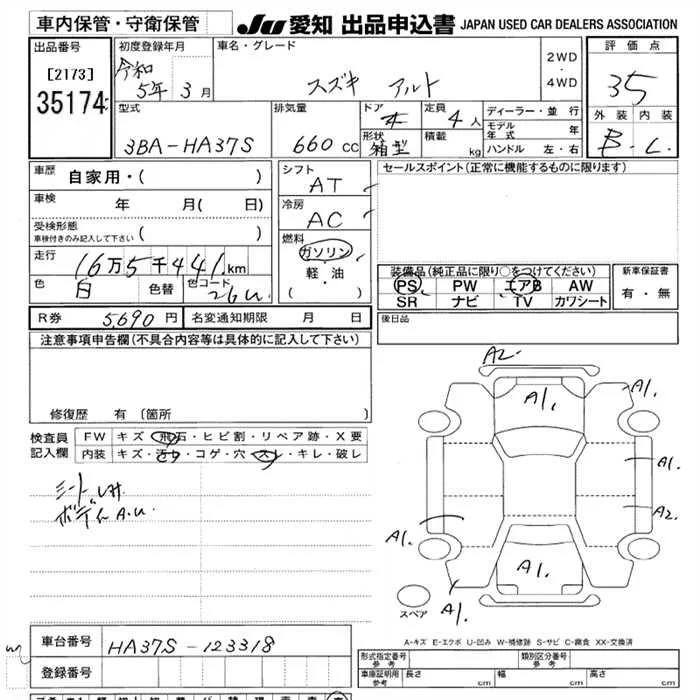 車内保管・守衛保管
JU 愛知 出品申込書 JAPAN USED CAR DEALERS ASSOCIATION
出品番号
[2173]
35174
初度登録年月
令和
5年 3月
車名・グレード
スズキ アルト
2WD
・
4WD
評価点
35
外装 内装
B・C
型式
3BA-HA37S
排気量
660cc
ドア
形状
箱型
定員
4人
積載
kg
ディーラー・並行
モデル年式 年
ハンドル 左・右
車歴 自家用・( )
車検 年 月( 日)
受検形態
車検付きのみ記入して下さい ( )
走行 16万5千441km
色 白 色替 色コード 26U
シフト
AT
冷房
AC
燃料
ガソリン
・
軽・油
( )
セールスポイント(正常に機能するものに限ります)
装備品(純正品に限り○をつけてください)
PS PW エアB AW
SR ナビ TV カワシート
新車保証書
有・無
後日品
R券 5,690円 名変通知期限 月 日
注意事項申告欄(不具合内容等は具体的に記入して下さい)
修復歴 有 〔箇所 〕
検査員
記入欄
FW キズ・飛石・ヒビ割・リペア跡・X要
内装 キズ・汚れ・コゲ・穴・スレ・キレ・破レ
ボデイ A.U.
A2
A1.
A1.
A1.
A2
A1.
A1.
A1.
スペア
A-キズ E-エクボ U-凹み W-補修跡 S-サビ C-腐食 XX-交換済
車台番号 HA37S-123318
登録番号
形式指定番号
参考
類別区分番号
参考
車庫証明用
参考
長さ cm 幅 cm 高さ cm